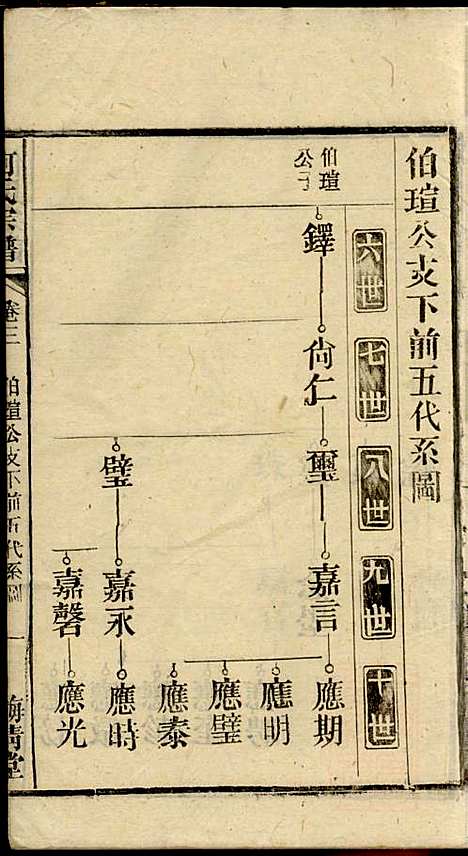 伯瑄公支下前五代系圖
六世
七世
八世
九世
十世
伯瑄
公子
鐸
尙仁
璽
嘉言
應期
應明
應璧
應泰
璧
嘉永
應時
嘉磬
應光
氏宗譜
卷三
伯瑄公支下前五代系圖
一